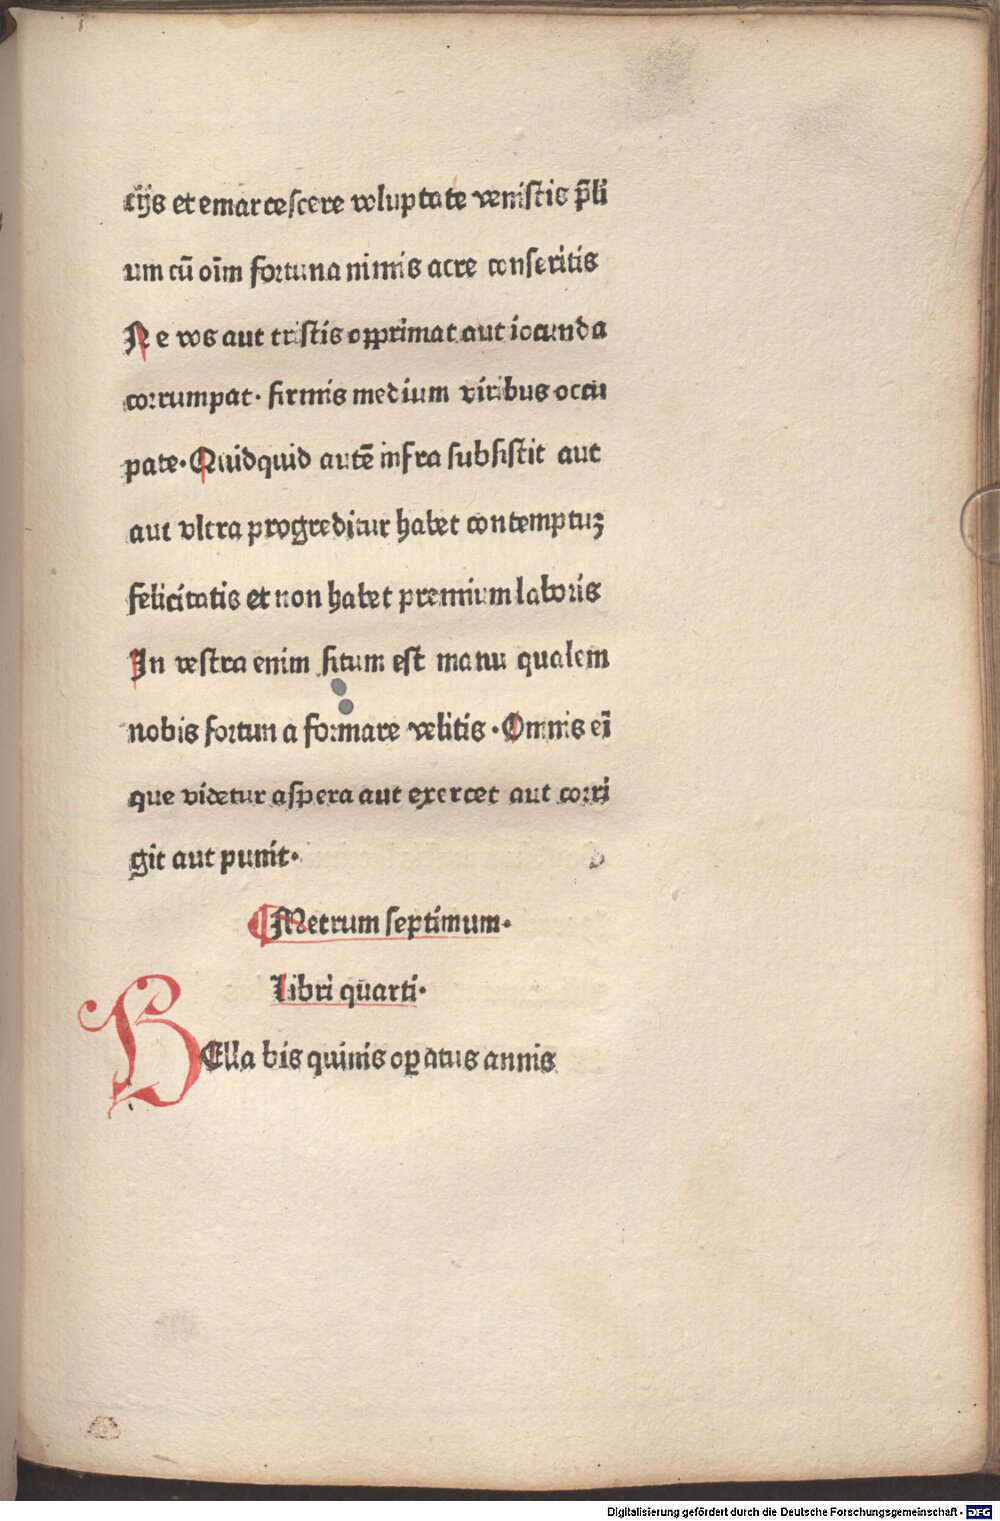 cijs et emarcescere voluptate venistis p̄li
um cū oīm fortuna nimis acre conseritis
Ne vos aut tristis opprimat aut iocunda
corrumpat· firmis medium viribus occu
pate· Quidquid autē infra subsistit aut
aut vltra progreditur habet contemptuꝫ
felicitatis et non habet premium laboris
In vestra enim situm est manu qualem
nobis fortuna formare velitis· Omnis eī
que videtur aspera aut exercet aut corri
git aut punit·
Metrum septimum·
Libri quarti·
BElla bis quinis oꝑatus annis
Digitalisierung gefördert durch die Deutsche Forschungsgemeinschaft - DFG